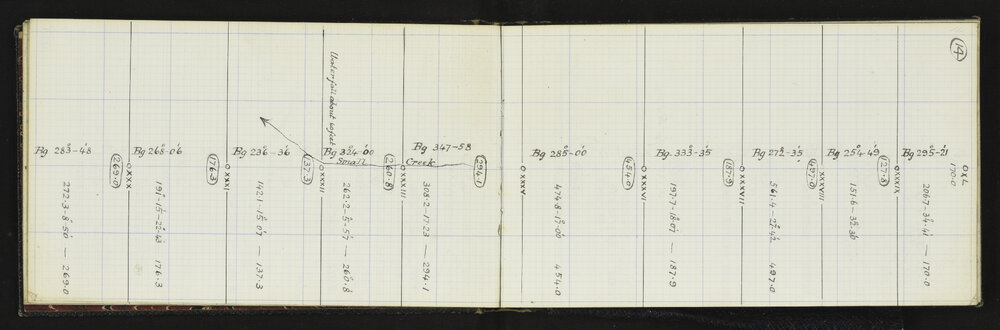 14
Bg 283°-48'
(269.0)
OXXX
272.3-8°50' — 269.0
Bg 268°-06'
(176.3)
OXXXI
191-15-22°-43' 176.3
Bg 236-36
(137.3)
OXXXII
142.1-15°07' — 137.3
Waterfall about 60 feet
Bg 324°-00
Small Creek
(260.8)
OXXXIII
262.2-5°-57' — 260.8
Bg 347-58
(294.1)
308.2-17.23 — 294.1
OXXXV
Bg 285°-00'
(454.0)
OXXXVI
474.8-17°-00' 454.0
Bg 333°-35'
(187.9)
OXXXVII
197.7-18°07' — 187.9
Bg 272°-35'
(497.0)
XXXVIII
561.4-27°-42' 497.0
Bg 254°-49'
(127.8)
OXXXIX
151.6-32°-30'
Bg 295°-21'
OXL
170.0
206.7-34°-41' — 170.0